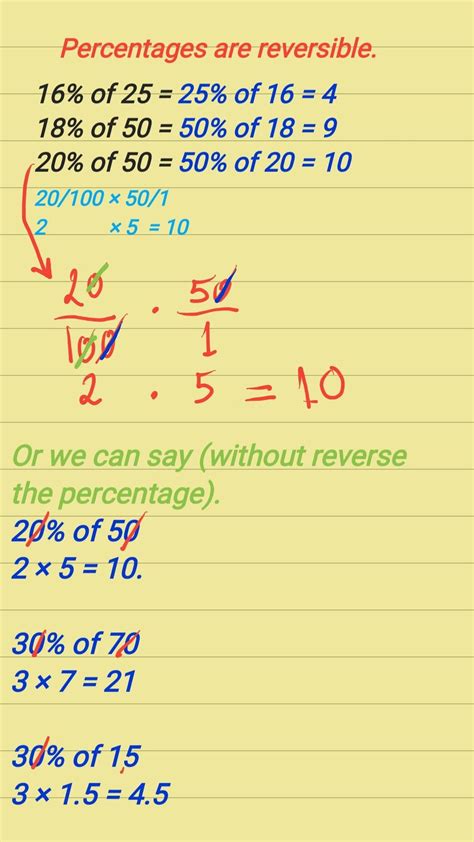 Percentages are reversible.
16% of 25 = 25% of 16 = 4
18% of 50 = 50% of 18 = 9
20% of 50 = 50% of 20 = 10
20/100 × 50/1
2 × 5 = 10
20/100 · 50/1
2 · 5 = 10
Or we can say (without reverse
the percentage).
20% of 50
2 × 5 = 10.
30% of 70
3 × 7 = 21
30% of 1,5
3 × 1.5 = 4.5